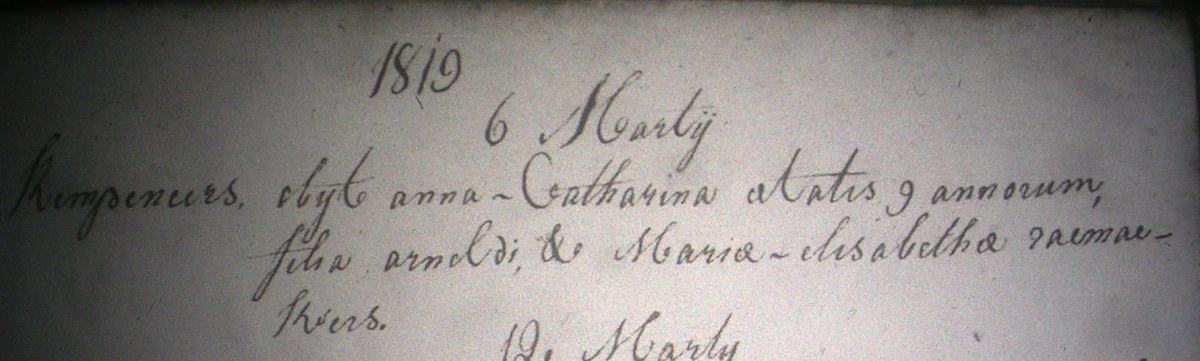 1819
6 Martÿ
Kempeneers. obÿt anna-Catharina ætatis 9 annorum,
filia arnoldi, & Mariæ-elisabethæ raemae-
kers.
12. Martÿ